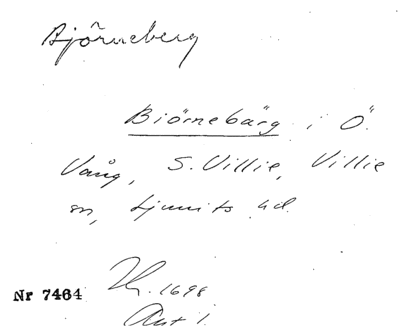 Björneberg
Biörnebärg i Ö.
Vång, S. Villie, Villie
sn, Ljunits hd.
Nr 7464
1698
Akt 1.